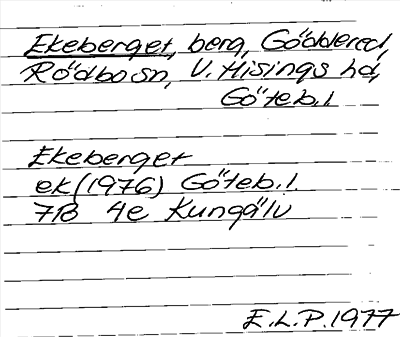 Ekeberget, berg, Göddered,
Rödbo sn, V. Hisings hd,
Göteb. l
Ekeberget
ek (1976) Göteb. l.
7B 4e Kungälv
E.L.P. 1977